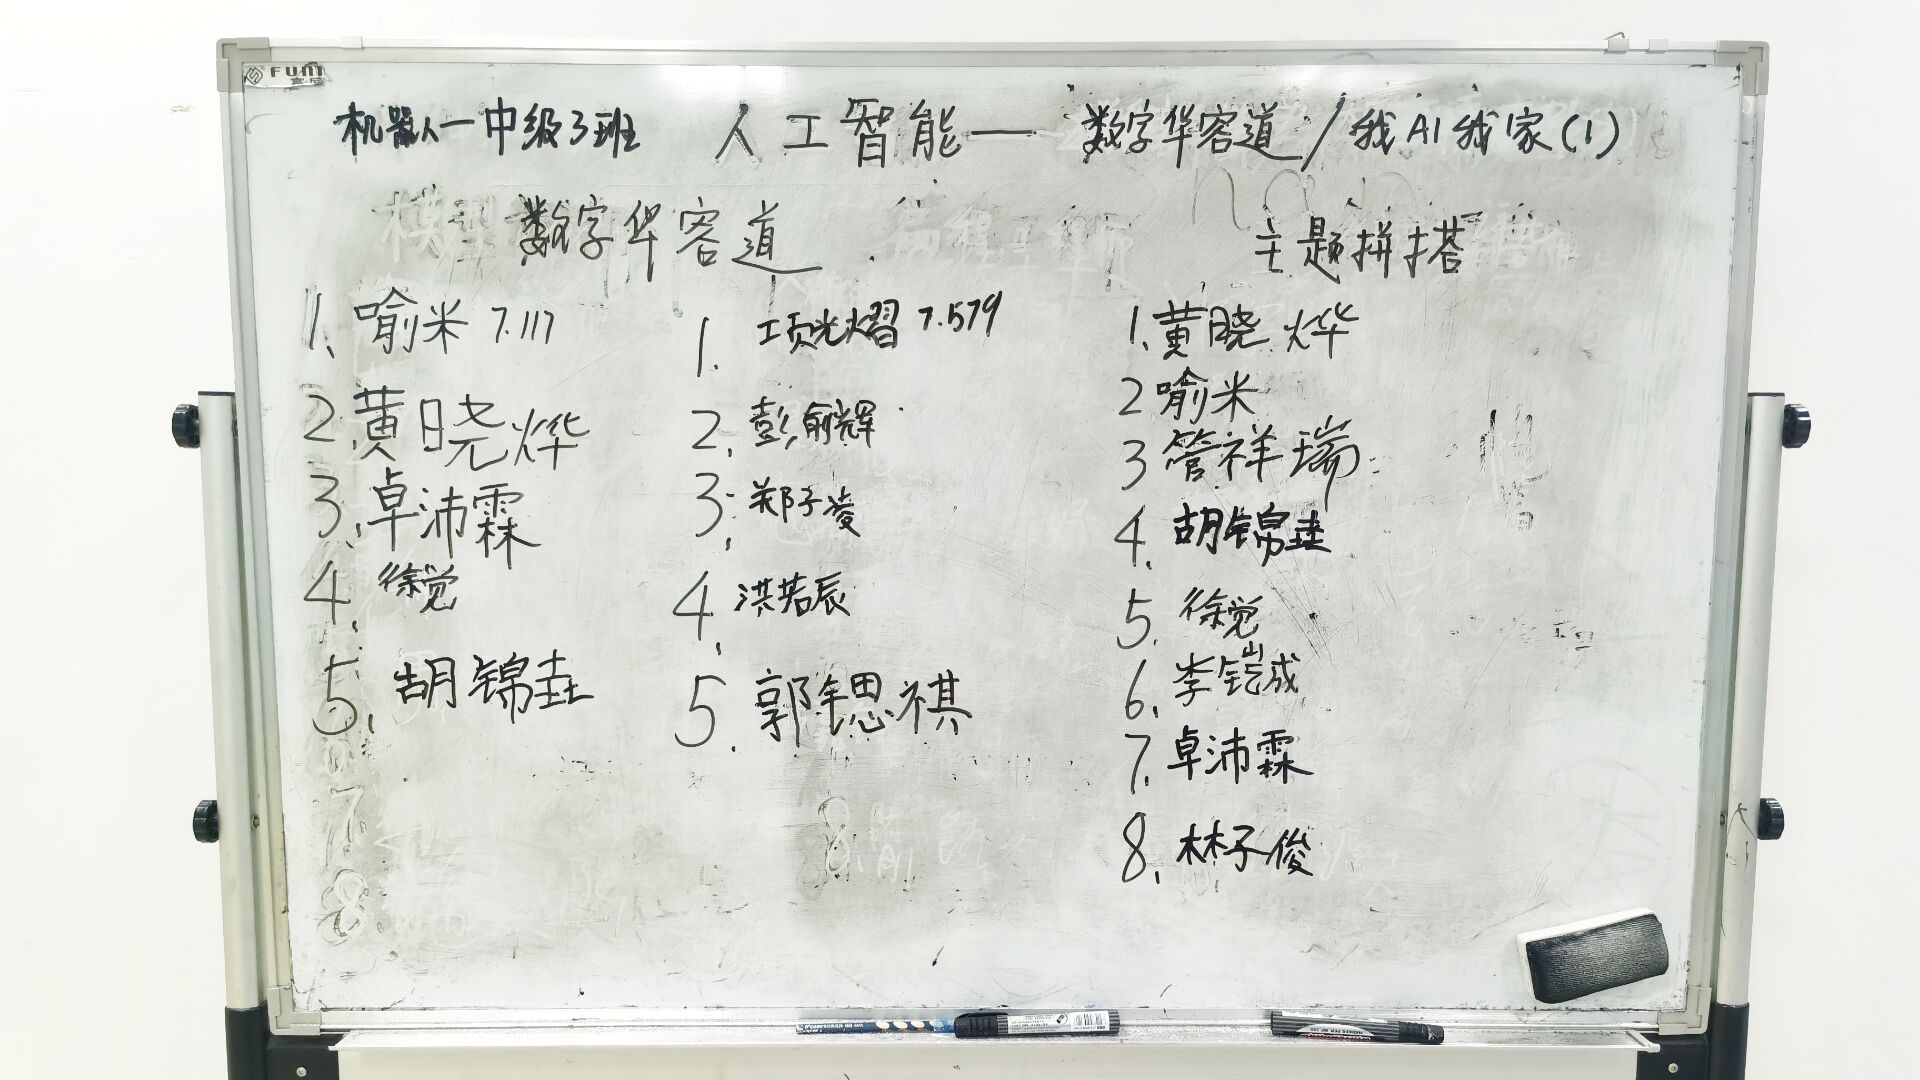 FUNI
机器人一中级3班 人工智能— 数字华容道/我AI我家(1)
数字华容道
主题拼搭
1、喻米 7.117
2.黄晓烨
3.卓沛霖
4.徐觉
5.胡锦垚
1. 项光熠 7.579
2.彭俞辉
3.郑子凌
4.洪若辰
5.郭锶祺
1.黄晓烨
2喻米
3管祥瑞
4.胡锦垚
5.徐觉
6.李铠成
7.卓沛霖
8.林子俊